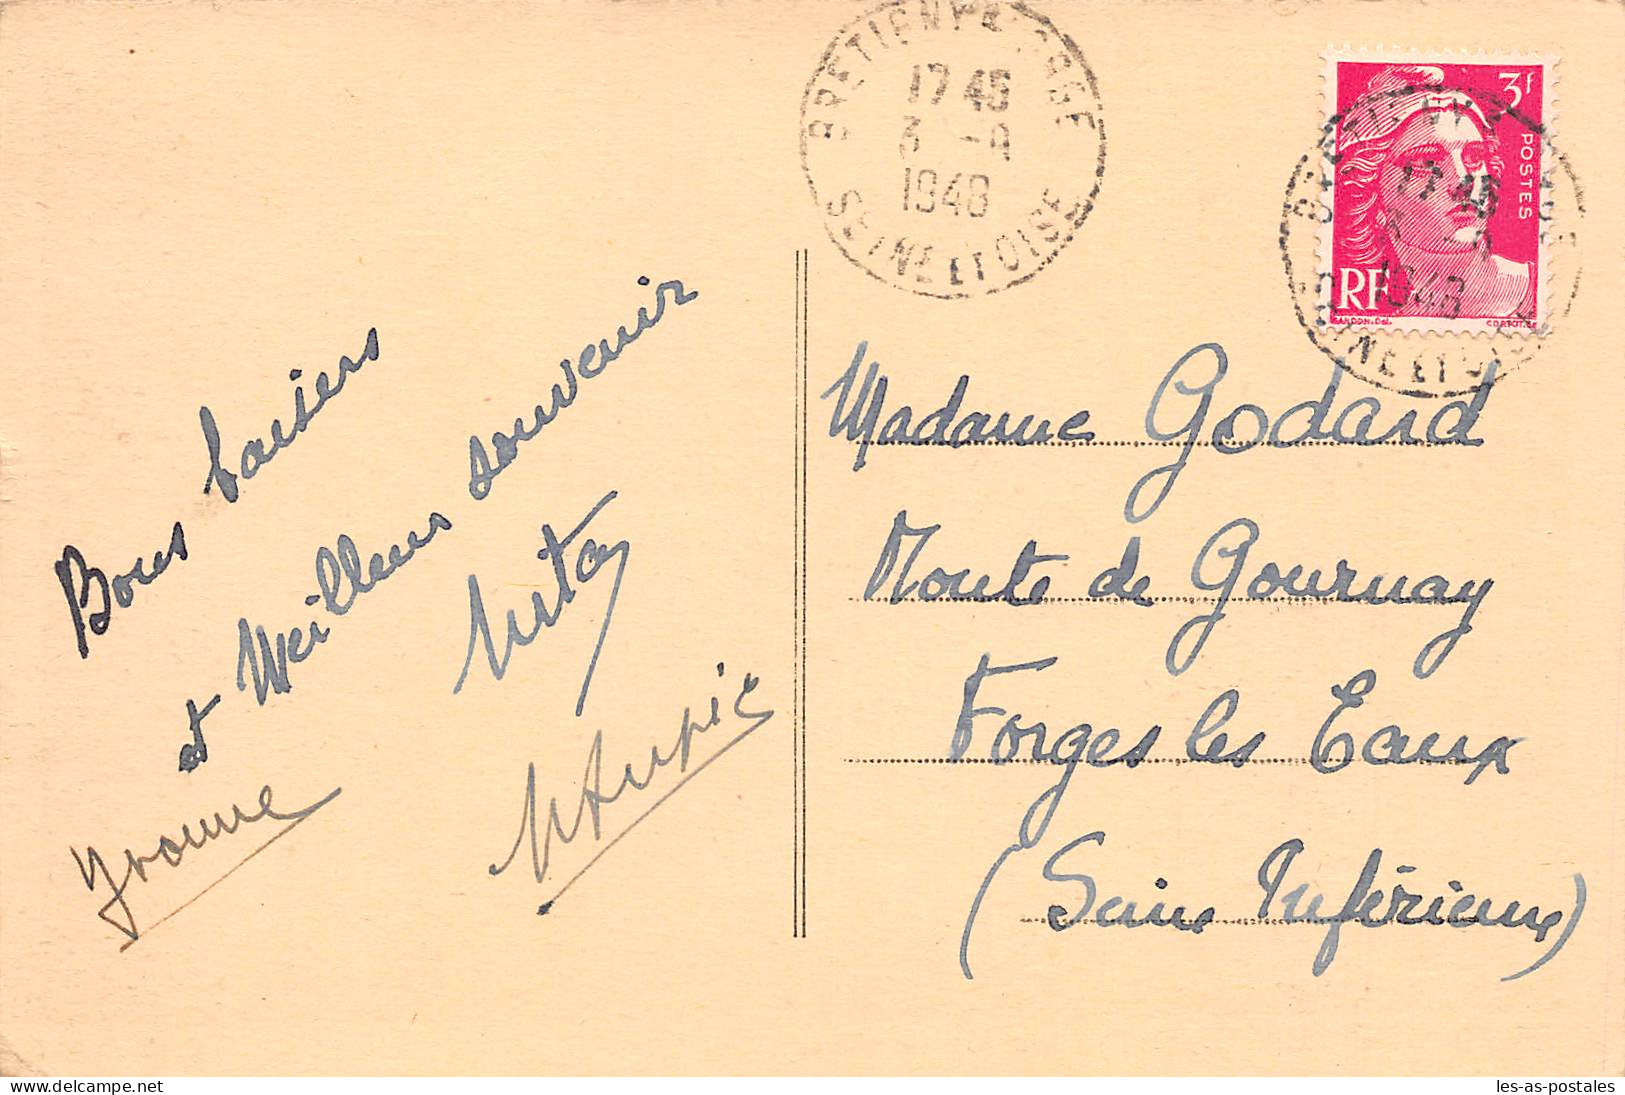 BRETIGNY S ORGE
17 45
3 - 11
1948
SEINE ET OISE
3f
POSTES
RF
GANDON.Del.
CORTOT.Sc
Bons baisers
et Meilleurs souvenir
Yvonne
Madame Godard
Route de Gournay
Forges les Eaux
(Seine Inférieure)
les-as-postales.com
les-as-postales